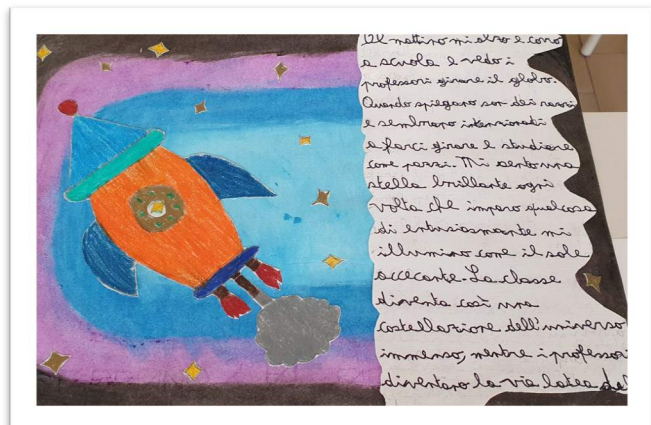 Il mattino mi alzo e corro
a scuola e vedo i
professori girare il globo.
Quando spiegano son dei razzi
e sembrano intenzionati
a farci girare e studiare
come pazzi. Mi sento una
stella brillante ogni
volta che imparo qualcosa
di entusiasmante mi
illumino come il sole
accecante. La classe
diventa così una
costellazione dell'universo
immenso, mentre i professori
diventano la via lattea del